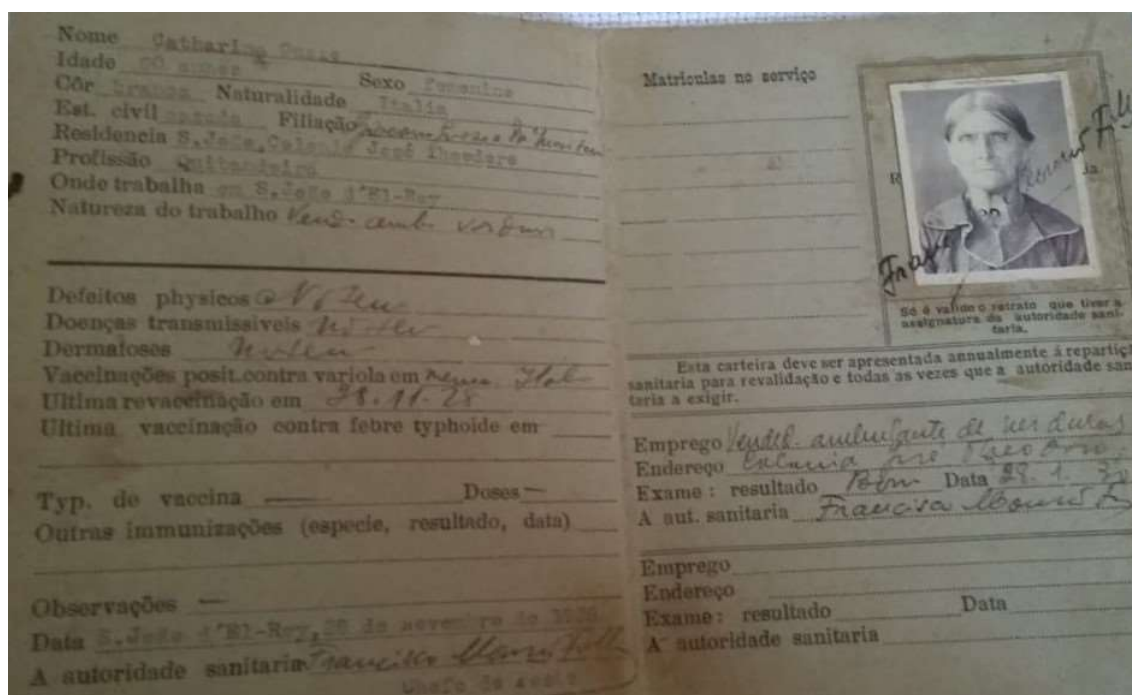 Nome Catharina
Idade Sexo Feminino
Côr branca Naturalidade Italia
Est. civil casada Filiação
Residencia S.João, Colonia José Theodoro
Profissão Quitandeira
Onde trabalha em S.João d'El-Rey
Natureza do trabalho Vend. amb. verduras
Defeitos physicos Não tem
Doenças transmissiveis Não tem
Dermatoses Não tem
Vaccinações posit.contra variola em
Ultima revaccinação em 28.11.28
Ultima vaccinação contra febre typhoide em
Typ. de vaccina — Doses —
Outras immunizações (especie, resultado, data)
Observações —
Data S.João d'El-Rey, 28 de novembro de 1928
A autoridade sanitaria Francisco Mourão Filho
Chefe do
Matriculas no serviço
Só é valido o retrato que tiver a
assignatura da autoridade sani-
taria.
Esta carteira deve ser apresentada annualmente á repartiç
sanitaria para revalidação e todas as vezes que a autoridade san
taria a exigir.
Emprego Vended. ambulante de verduras
Endereço Colonia José Theodoro
Exame: resultado Bom Data 28. 1. 30
A aut. sanitaria Francisco Mourão F.
Emprego
Endereço
Exame: resultado Data
A autoridade sanitaria